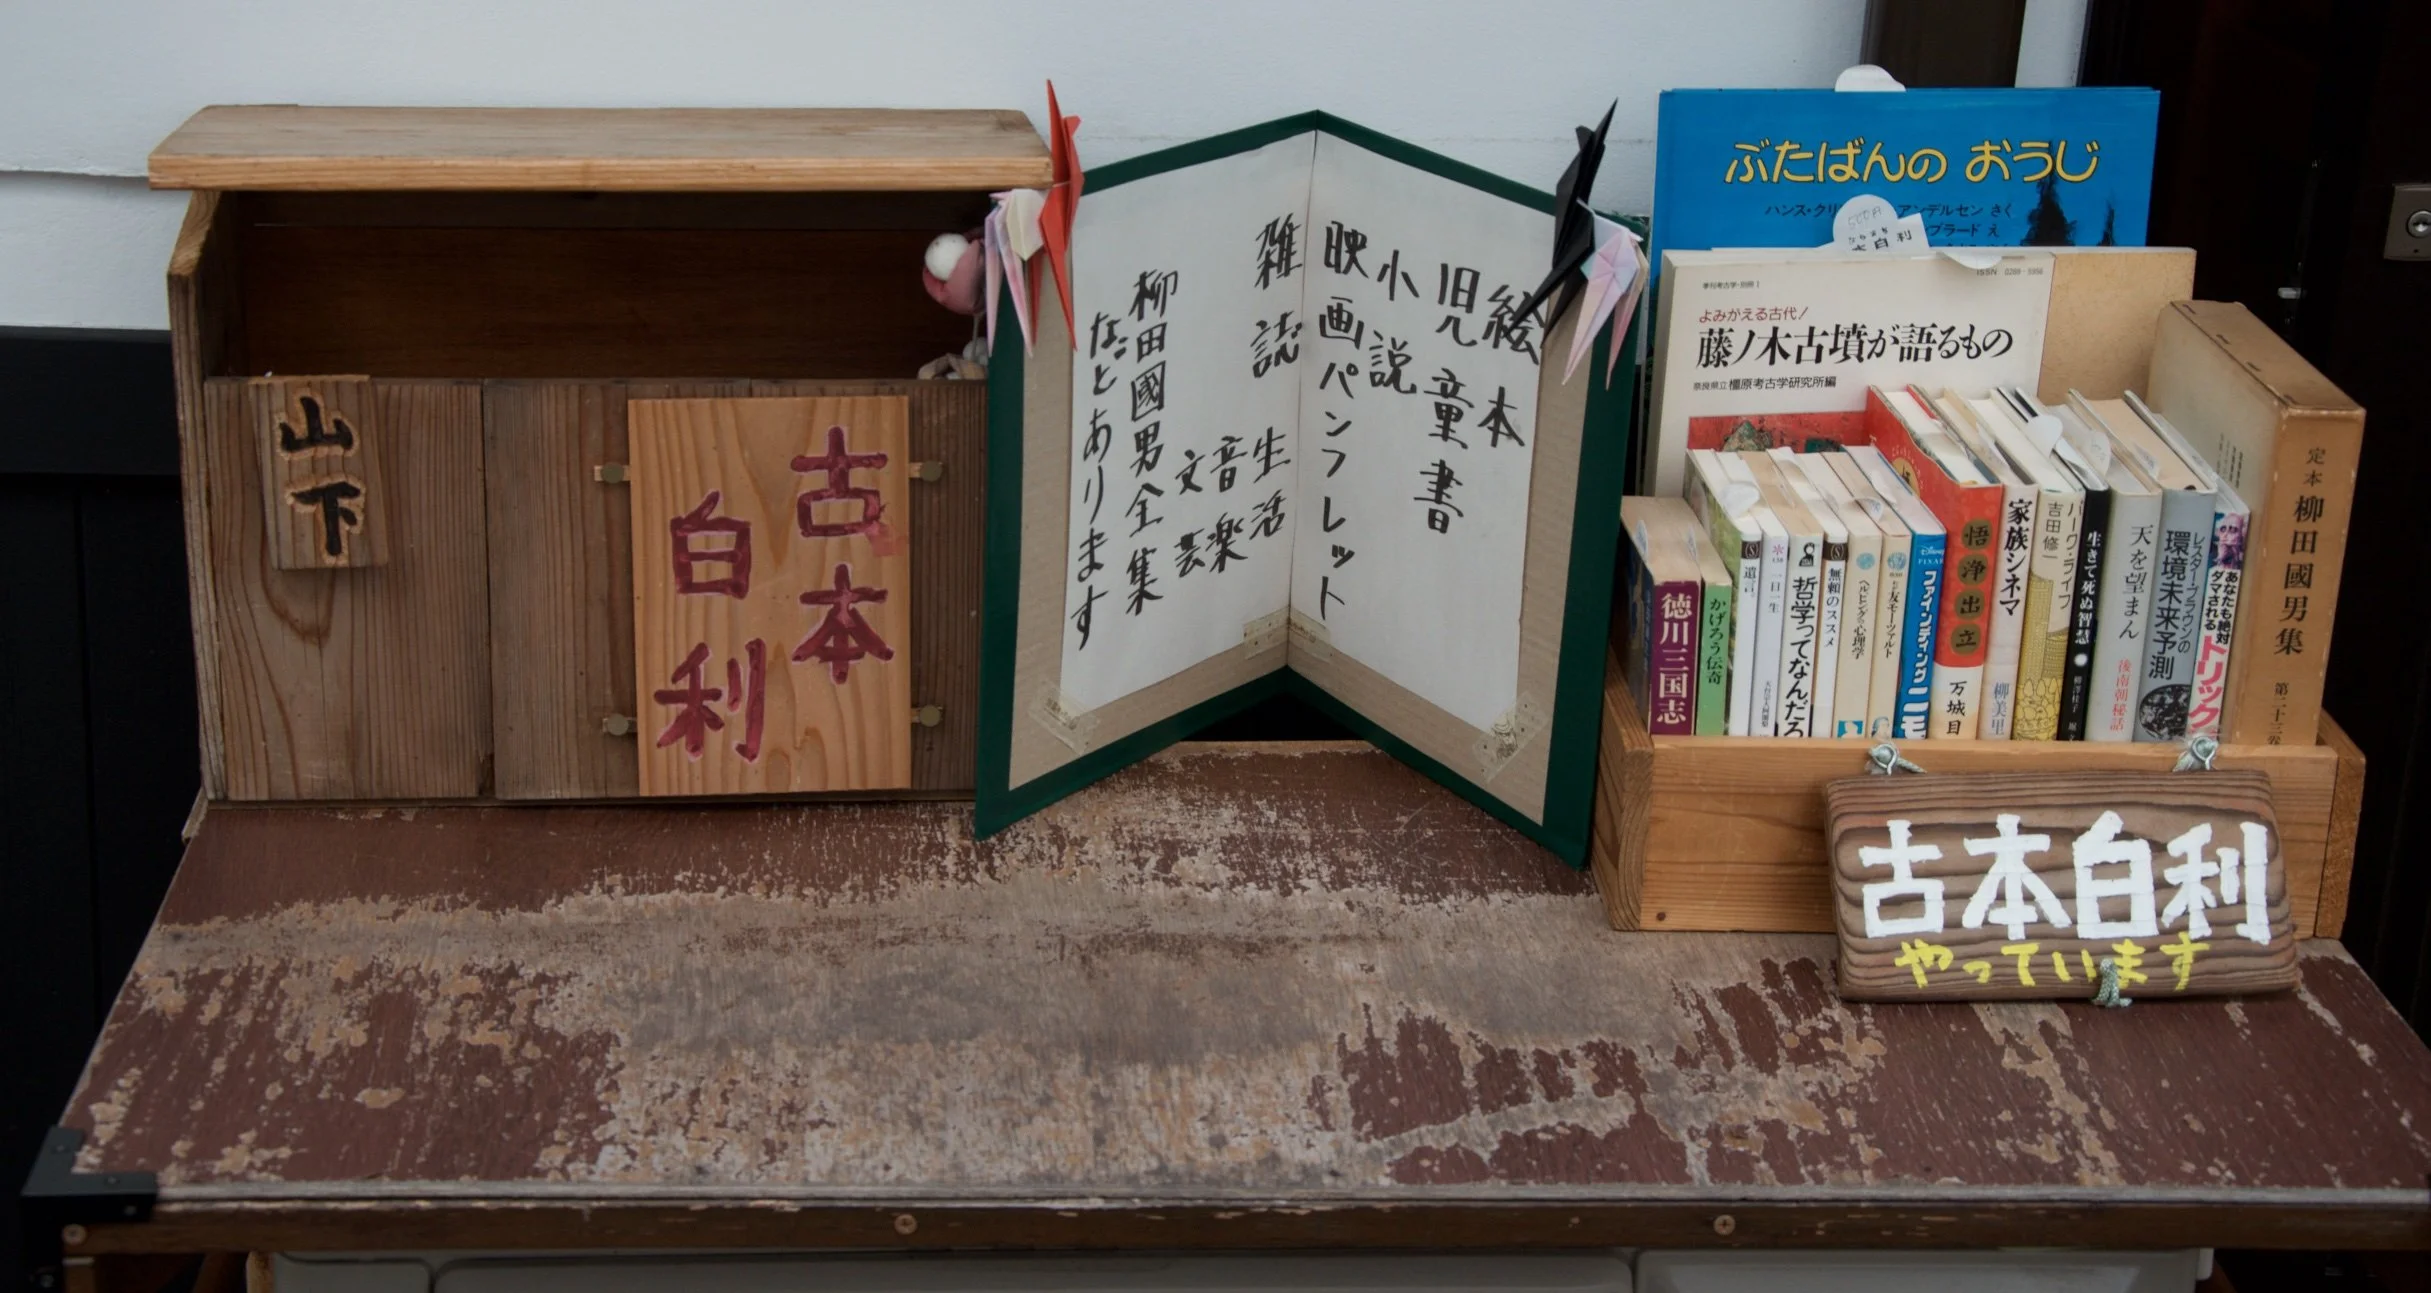 山下
古本
白利
絵本
児童書
小説
映画パンフレット
雑誌 生活
音楽
文芸
柳田國男全集
などあります
ぶたばんの おうじ
アンデルセン さく
ISSN 0289-5956
季刊考古学・別冊 1
よみがえる古代!
藤ノ木古墳が語るもの
奈良県立橿原考古学研究所編
徳川三国志
かげろう伝奇
遺言。
一日一生
哲学ってなんだろ
無頼のススメ
ヘルピングの心理学
モーツァルト
Disney PIXAR
ファインディング ニモ
悟浄出立
万城目
家族シネマ
柳美里
パーク・ライフ
吉田修一
生きて死ぬ智慧
柳澤桂子 堀
天を望まん
後南朝秘話
レスター・ブラウンの
環境未来予測
あなたも絶対
ダマされる
トリック
定本 柳田國男集 第二十三巻
古本白利
やっています